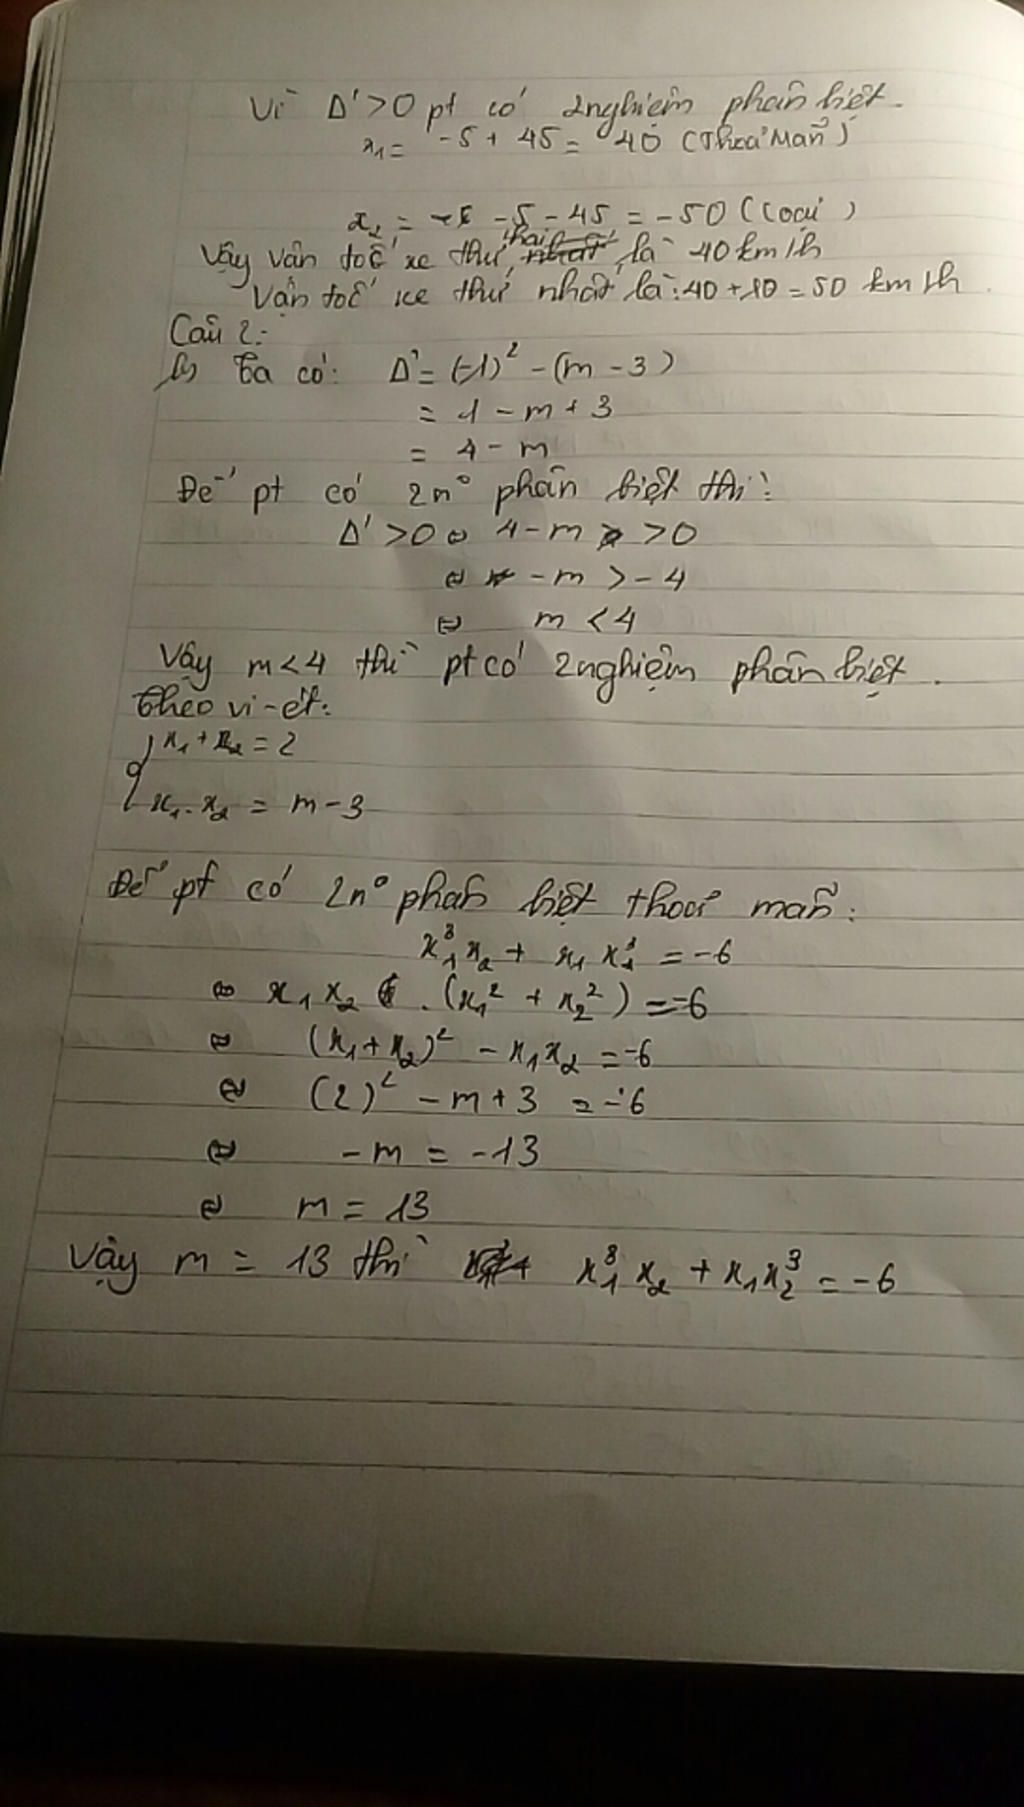 Vì Δ' > 0 pt có 2 nghiệm phân biệt.
x₁ = -5 + 45 = 40 (Thoả Mãn)
x₂ = -5 - 45 = -50 (Loại)
Vậy vân tốc xe thứ hai là 40 km/h
Vận tốc xe thứ nhất là: 40 + 10 = 50 km/h.
Câu 2:
b, Ta có: Δ' = (-1)² - (m - 3)
= 1 - m + 3
= 4 - m
Để pt có 2n° phân biệt thì:
Δ' > 0 ⇔ 4 - m > 0
⇔ -m > -4
⇔ m < 4
Vậy m < 4 thì pt có 2 nghiệm phân biệt.
Theo vi-ét:
{ x₁ + x₂ = 2
x₁. x₂ = m - 3
Để pt có 2n° phân biệt thoả mãn:
x₁³x₂ + x₁x₁³ = -6
⇔ x₁x₂ . (x₁² + x₂²) = -6
⇔ (x₁ + x₂)² - x₁x₂ = -6
⇔ (2)² - m + 3 = -6
⇔ -m = -13
⇔ m = 13
Vậy m = 13 thì x₁³x₂ + x₁x₂³ = -6